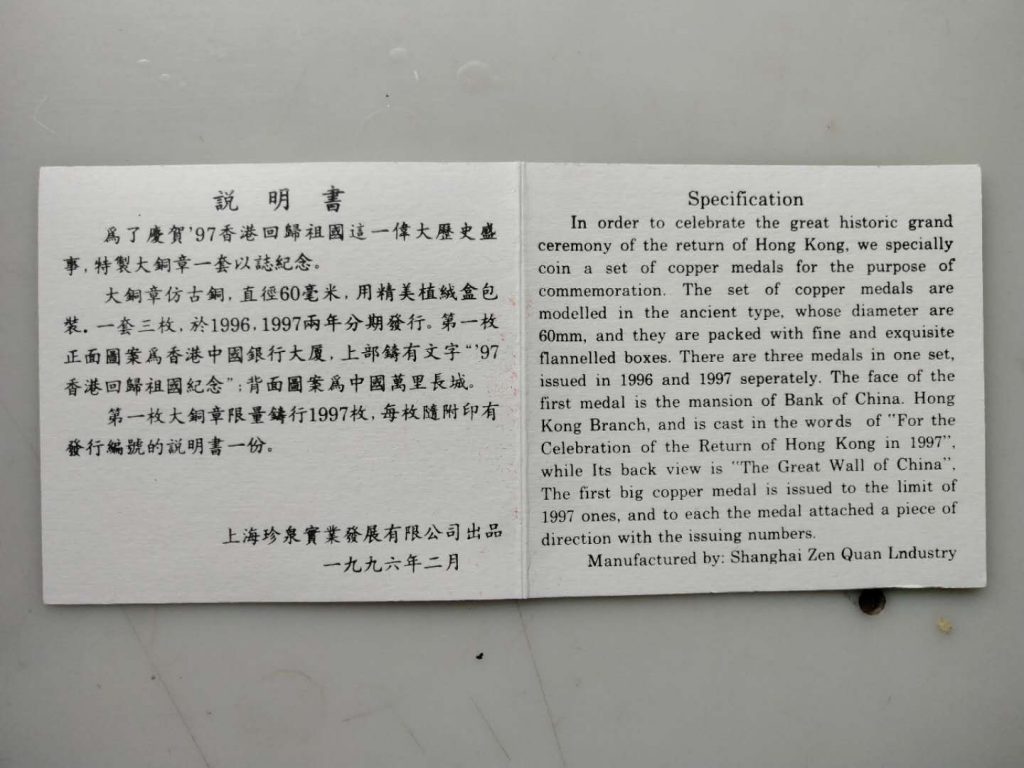 説明書
爲了慶賀'97香港回歸祖國這一偉大歷史盛
事,特製大銅章一套以誌紀念。
大銅章仿古銅,直徑60毫米,用精美植絨盒包
裝.一套三枚,於1996,1997兩年分期發行。第一枚
正面圖案爲香港中國銀行大厦,上部鑄有文字“'97
香港回歸祖國紀念”;背面圖案爲中國萬里長城。
第一枚大銅章限量鑄行1997枚,每枚隨附印有
發行編號的説明書一份。
上海珍泉實業發展有限公司出品
一九九六年二月
Specification
In order to celebrate the great historic grand
ceremony of the return of Hong Kong, we specially
coin a set of copper medals for the purpose of
commemoration. The set of copper medals are
modelled in the ancient type, whose diameter are
60mm, and they are packed with fine and exquisite
flannelled boxes. There are three medals in one set,
issued in 1996 and 1997 seperately. The face of the
first medal is the mansion of Bank of China. Hong
Kong Branch, and is cast in the words of "For the
Celebration of the Return of Hong Kong in 1997",
while Its back view is "The Great Wall of China".
The first big copper medal is issued to the limit of
1997 ones, and to each the medal attached a piece of
direction with the issuing numbers.
Manufactured by: Shanghai Zen Quan Lndustry